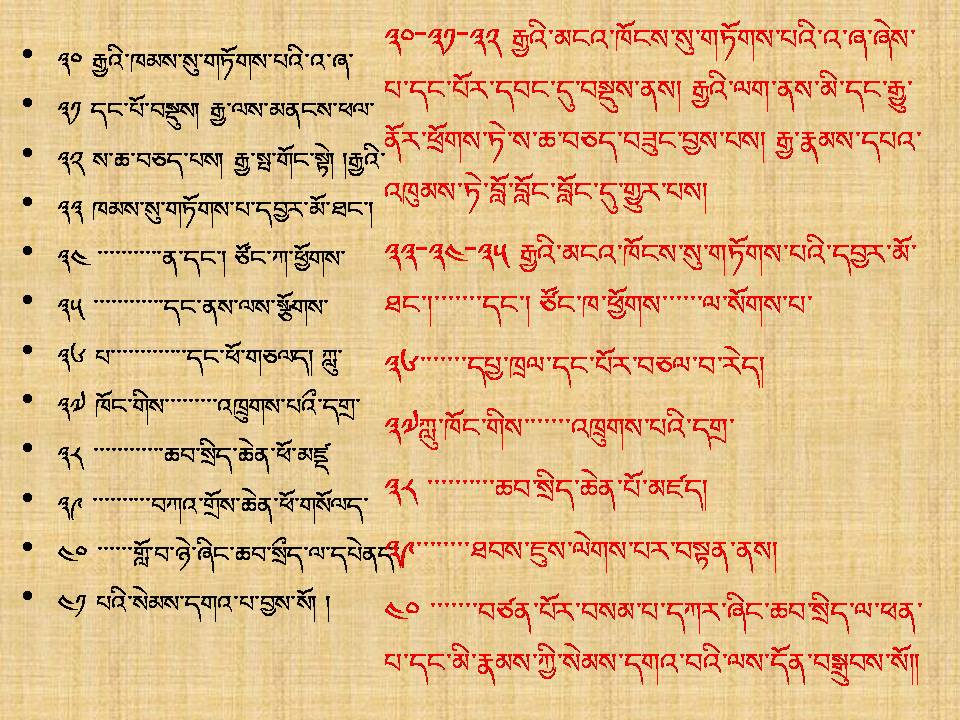 • ༣༠ རྒྱའི་ཁམས་སུ་གཏོགས་པའི་འ་ཞ་
• ༣༡ དང་པོ་བསྡུས། རྒྱ་ལས་མནངས་ཕལ་
• ༣༢ ས་ཆ་བཅད་པས། རྒྱ་སྤ་གོང་སྟེ། །རྒྱའི་
• ༣༣ ཁམས་སུ་གཏོགས་པ་དབྱར་མོ་ཐང་།
• ༣༤ ་་་་་་་་་་་ན་དང་། ཙོང་ཀ་ཕྱོགས་
• ༣༥ ་་་་་་་་་་་་དང་ནས་ལས་སྩོགས་
• ༣༦ པ་་་་་་་་་་་་་དང་ཕོ་གཅལད། ཀླུ་
• ༣༧ ཁོང་གིས་་་་་་་་་འཁྲུགས་པའི་དགྲ་
• ༣༨ ་་་་་་་་་་་་ཆབ་སྲིད་ཆེན་ཕོ་མཛད
• ༣༩ ་་་་་་་་་་བཀའ་གྲོས་ཆེན་ཕོ་གསོལད་
• ༤༠ ་་་་་་གློ་བ་ཉེ་ཞིང་ཆབ་སྲིད་ལ་དཔེནད།
• ༤༡ པའི་སེམས་དགའ་པ་བྱས་སོ། །
༣༠-༣༡-༣༢ རྒྱའི་མངའ་ཁོངས་སུ་གཏོགས་པའི་འ་ཞ་ཞེས་
པ་དང་པོར་དབང་དུ་བསྡུས་ནས། རྒྱའི་ལག་ནས་མི་དང་རྒྱུ་
ནོར་ཕྲོགས་ཏེ་ས་ཆ་བཅད་བཟུང་བྱས་པས། རྒྱ་རྣམས་དཔའ་
འཁུམས་ཏེ་བློ་བློང་བློང་དུ་གྱུར་པས།
༣༣-༣༤-༣༥ རྒྱའི་མངའ་ཁོངས་སུ་གཏོགས་པའི་དབྱར་མོ་
ཐང་།་་་་་་་དང་། ཙོང་ཁ་ཕྱོགས་་་་་་ལ་སོགས་པ་
༣༦་་་་་་་དཔྱ་ཁྲལ་དང་པོར་བཅལ་བ་རེད།
༣༧ཀླུ་ཁོང་གིས་་་་་་་འཁྲུགས་པའི་དགྲ་
༣༨ ་་་་་་་་་་ཆབ་སྲིད་ཆེན་པོ་མཛད།
༣༩་་་་་་་་ཐབས་ཇུས་ལེགས་པར་བསྟན་ནས།
༤༠ ་་་་་་་བཙན་པོར་བསམ་པ་དཀར་ཞིང་ཆབ་སྲིད་ལ་ཕན་
པ་དང་མི་རྣམས་ཀྱི་སེམས་དགའ་བའི་ལས་དོན་བསྒྲུབས་སོ།།